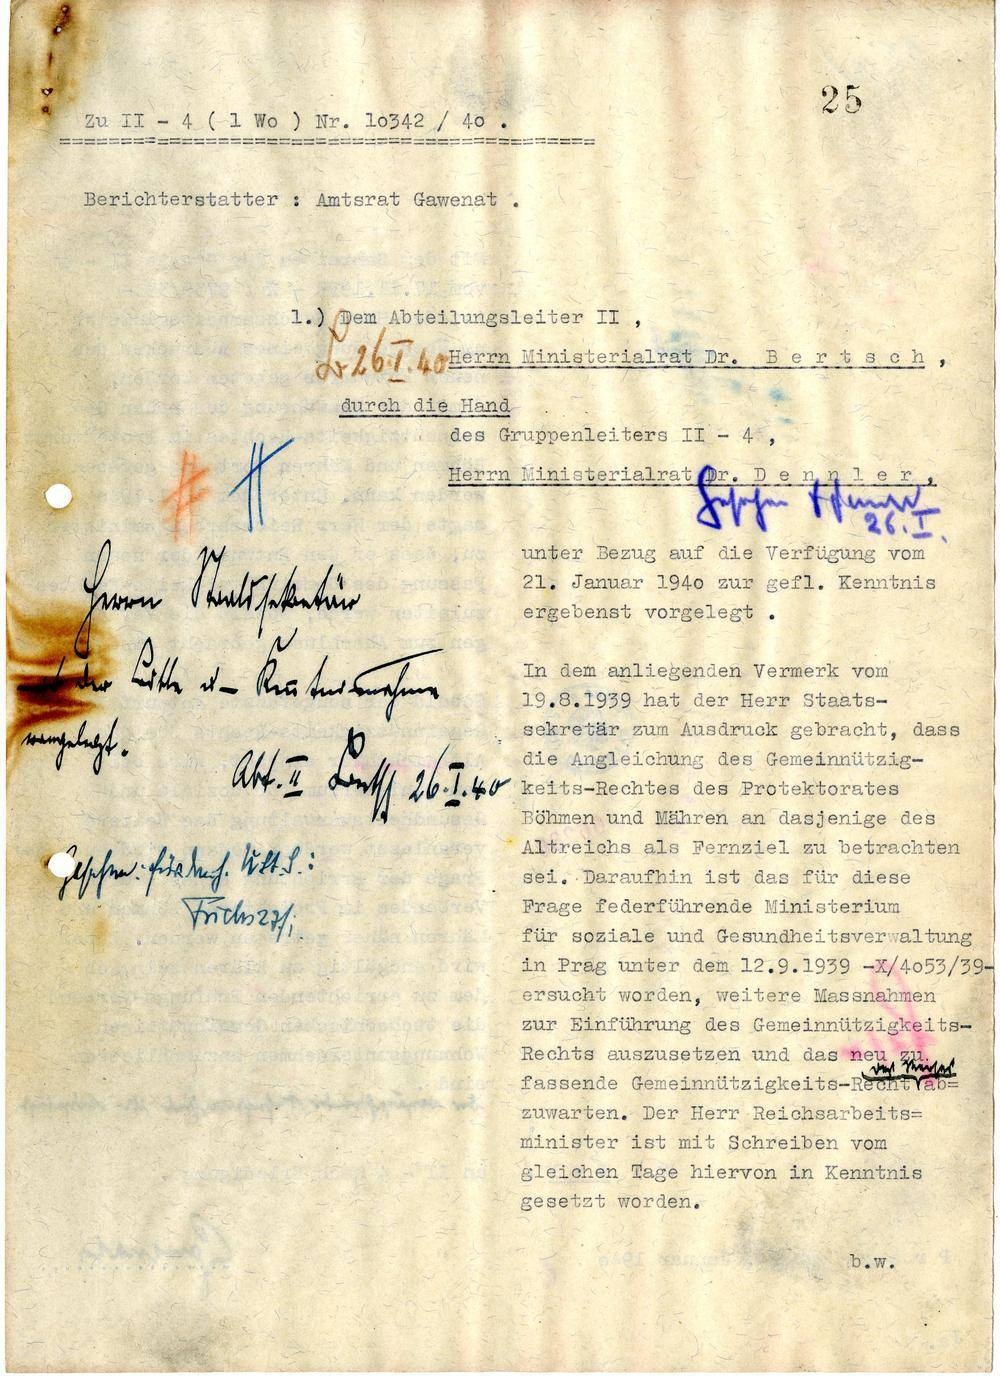 25
Zu II - 4 ( 1 Wo ) Nr. 1o342 / 4o .
Berichterstatter : Amtsrat Gawenat .
1.) Dem Abteilungsleiter II ,
26.I.40
Herrn Ministerialrat Dr. B e r t s c h ,
durch die Hand
des Gruppenleiters II - 4 ,
Herrn Ministerialrat Dr. D e n n l e r ,
Gesehen
26.I.
unter Bezug auf die Verfügung vom
21. Januar 194o zur gefl. Kenntnis
ergebenst vorgelegt .
Herrn Staatssekretär
mit der Bitte u- Kenntnisnahme
vorgelegt.
Abt. II 26.I.40
Gesehen:
Fuchs 27/I
In dem anliegenden Vermerk vom
19.8.1939 hat der Herr Staats-
sekretär zum Ausdruck gebracht, dass
die Angleichung des Gemeinnützig-
keits-Rechtes des Protektorates
Böhmen und Mähren an dasjenige des
Altreichs als Fernziel zu betrachten
sei. Daraufhin ist das für diese
Frage federführende Ministerium
für soziale und Gesundheitsverwaltung
in Prag unter dem 12.9.1939 -X/4o53/39-
ersucht worden, weitere Massnahmen
zur Einführung des Gemeinnützigkeits-
Rechts auszusetzen und das neu zu
des Reiches
fassende Gemeinnützigkeits-Recht ab=
zuwarten. Der Herr Reichsarbeits=
minister ist mit Schreiben vom
gleichen Tage hiervon in Kenntnis
gesetzt worden.
b.w.